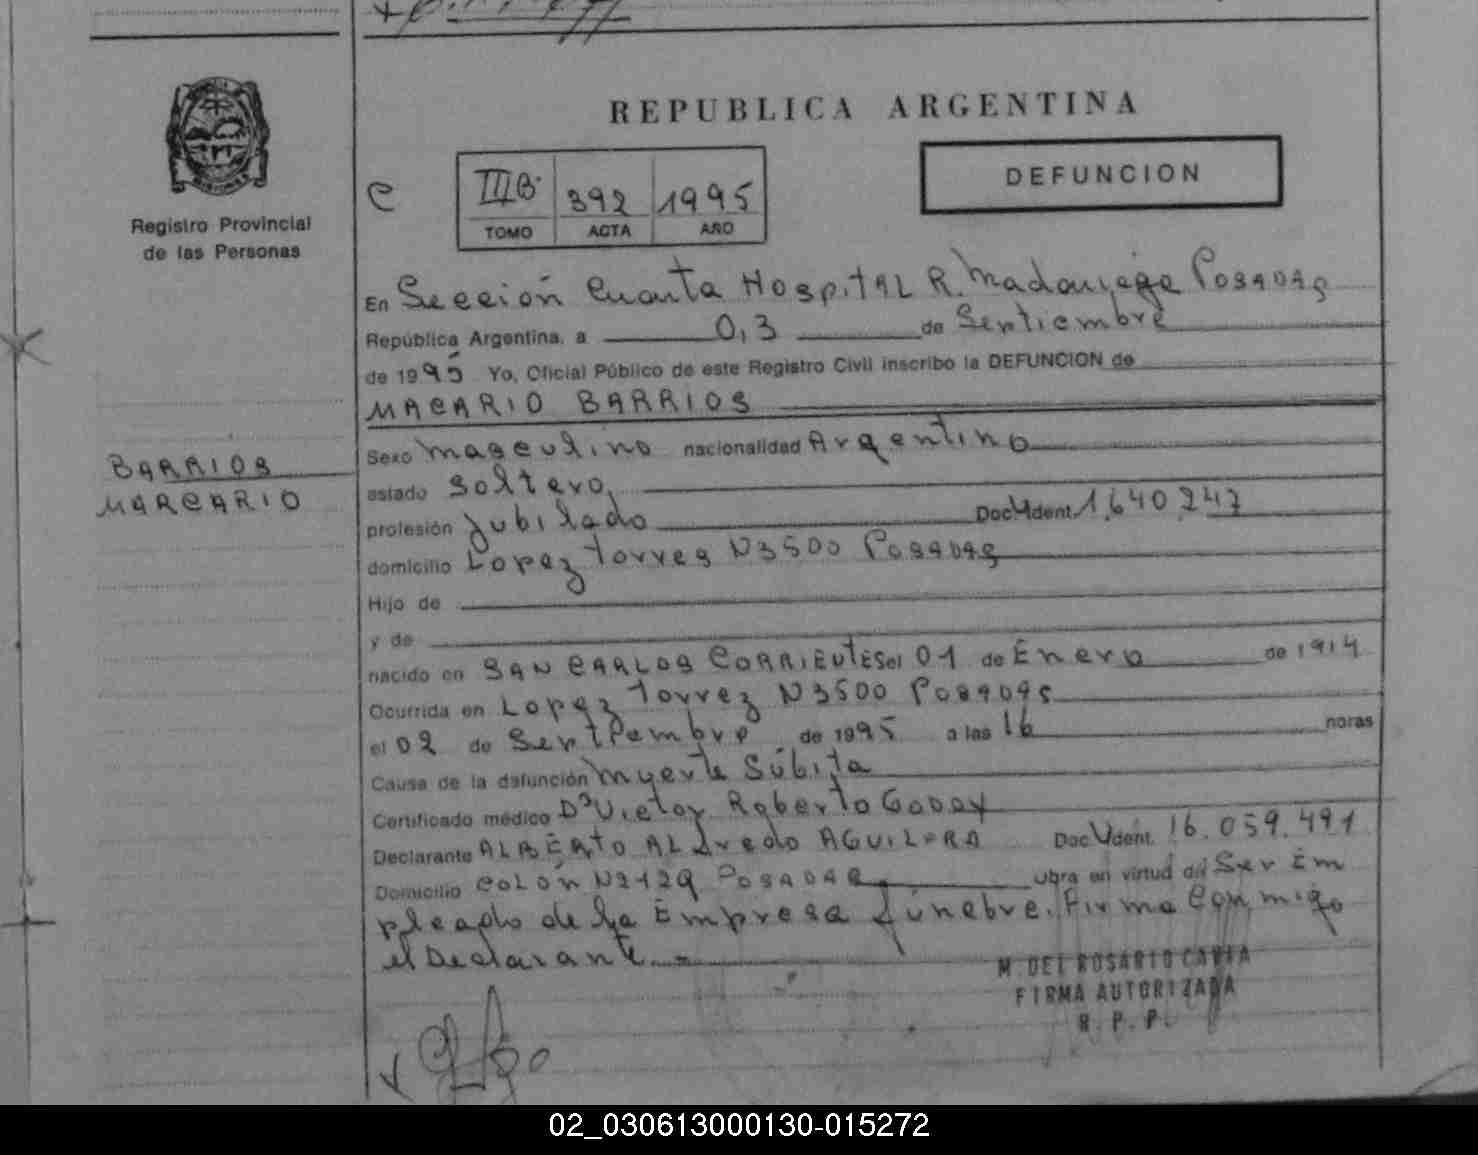 REPUBLICA ARGENTINA
DEFUNCION
C
IIIB. 392 1995
TOMO ACTA AÑO
MISIONES
Registro Provincial
de las Personas
En Sección Cuarta Hospital R. Madariaga Posadas
República Argentina, a 03 de Septiembre
de 1995 Yo, Oficial Público de este Registro Civil inscribo la DEFUNCION de
MACARIO BARRIOS
BARRIOS
MARCARIO
Sexo masculino nacionalidad Argentino
estado Soltero
profesión Jubilado Doc. Ident. 1.640.247
domicilio Lopez Torres N3500 Posadas
Hijo de
y de
nacido en SAN CARLOS CORRIENTES el 01 de Enero de 1914
Ocurrida en Lopez Torrez N3500 Posadas
el 02 de Septiembre de 1995 a las 16 horas
Causa de la defunción muerte Súbita
Certificado médico Dr Victor Roberto Godoy
Declarante ALBERTO ALfredo AGUILERA Doc. Ident. 16.059.491
Domicilio COLÓN N2129 POSADAS obra en virtud de Ser Em
pleado de la Empresa fúnebre. Firma Conmigo
el Declarante.=
M. DEL ROSARIO
FIRMA AUTORIZADA
R. P. P.
02_030613000130-015272